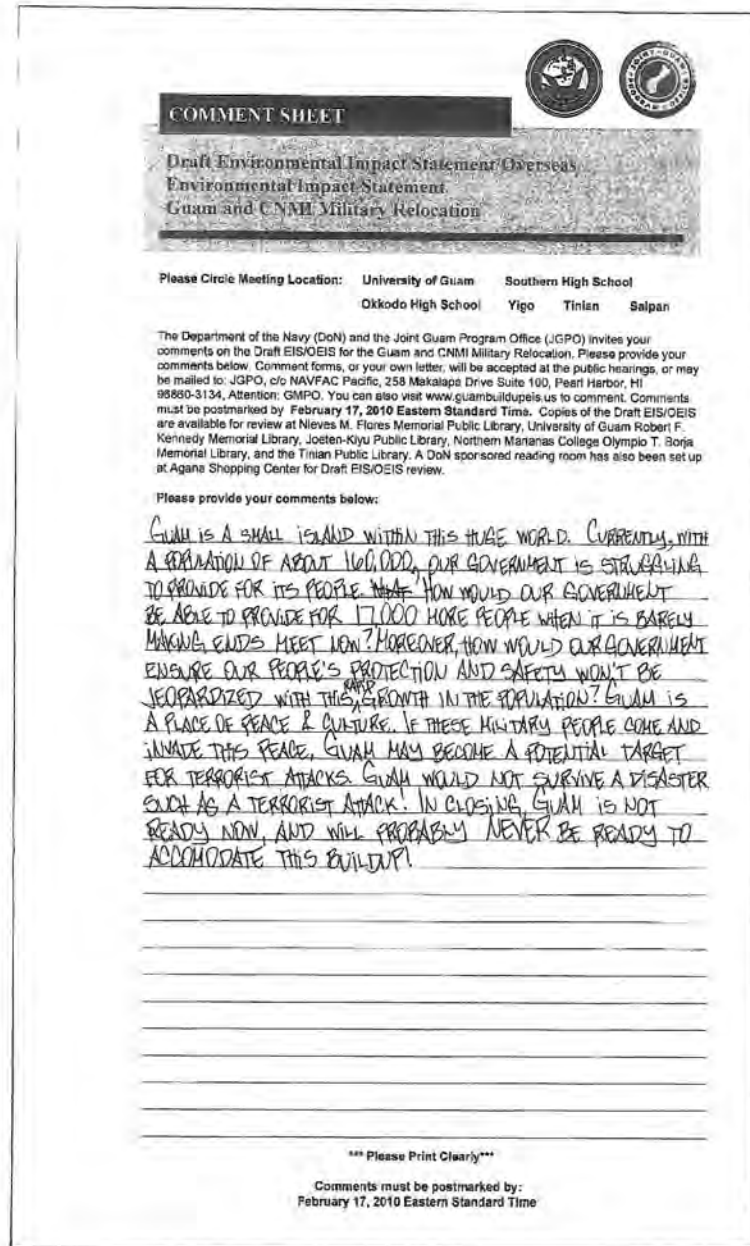 COMMENT SHEET
Draft Environmental Impact Statement/Overseas
Environmental Impact Statement
Guam and CNMI Military Relocation
Please Circle Meeting Location: University of Guam Southern High School
Okkodo High School Yigo Tinian Saipan
The Department of the Navy (DoN) and the Joint Guam Program Office (JGPO) invites your
comments on the Draft EIS/OEIS for the Guam and CNMI Military Relocation. Please provide your
comments below. Comment forms, or your own letter, will be accepted at the public hearings, or may
be mailed to: JGPO, c/o NAVFAC Pacific, 258 Makalapa Drive Suite 100, Pearl Harbor, HI
96860-3134, Attention: GMPO. You can also visit www.guambuildupeis.us to comment. Comments
must be postmarked by February 17, 2010 Eastern Standard Time. Copies of the Draft EIS/OEIS
are available for review at Nieves M. Flores Memorial Public Library, University of Guam Robert F.
Kennedy Memorial Library, Joeten-Kiyu Public Library, Northern Marianas College Olympio T. Borja
Memorial Library, and the Tinian Public Library. A DoN sponsored reading room has also been set up
at Agana Shopping Center for Draft EIS/OEIS review.
Please provide your comments below:
GUAM IS A SMALL ISLAND WITHIN THIS HUGE WORLD. CURRENTLY, WITH
A POPULATION OF ABOUT 160,000, OUR GOVERNMENT IS STRUGGLING
TO PROVIDE FOR ITS PEOPLE. HOW WOULD OUR GOVERNMENT
BE ABLE TO PROVIDE FOR 17,000 MORE PEOPLE WHEN IT IS BARELY
MAKING ENDS MEET NOW? MOREOVER, HOW WOULD OUR GOVERNMENT
ENSURE OUR PEOPLE'S PROTECTION AND SAFETY WON'T BE
JEOPARDIZED WITH THIS RAPID GROWTH IN THE POPULATION? GUAM IS
A PLACE OF PEACE & CULTURE. IF THESE MILITARY PEOPLE COME AND
INVADE THIS PEACE, GUAM MAY BECOME A POTENTIAL TARGET
FOR TERRORIST ATTACKS. GUAM WOULD NOT SURVIVE A DISASTER
SUCH AS A TERRORIST ATTACK! IN CLOSING, GUAM IS NOT
READY NOW, AND WILL PROBABLY NEVER BE READY TO
ACCOMODATE THIS BUILDUP!
*** Please Print Clearly***
Comments must be postmarked by:
February 17, 2010 Eastern Standard Time